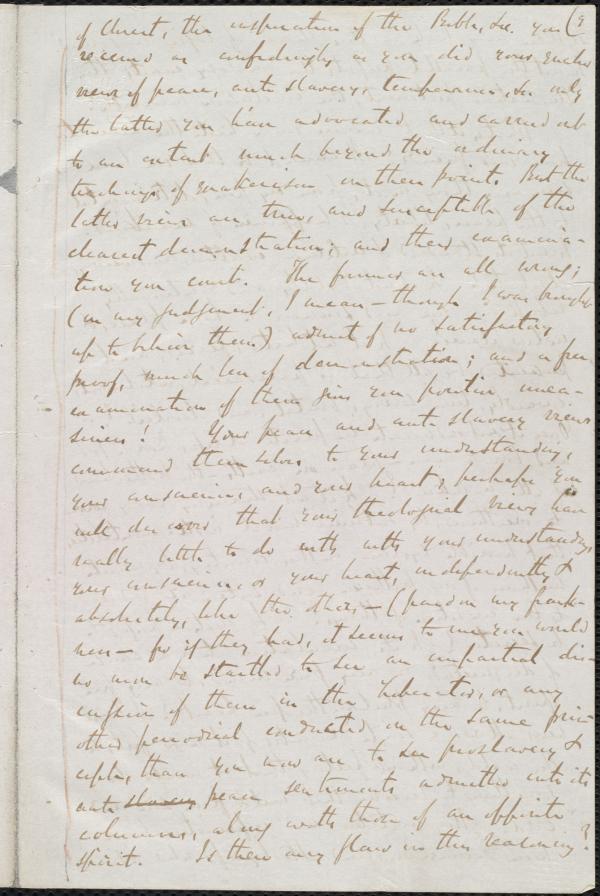 of Christ, the inspiration of the Bible, &c. you
receive as confidingly as you did your Quaker
views of peace, anti slavery, temperance, &c only
the latter you have advocated and carried out
to an extent much beyond the ordinary
teachings of Quakerism on these points. But the
latter views are true, and susceptible of the
clearest demonstration; and their examina-
tion you court. The former are all wrong;
(in my judgement, I mean — though I was brought
up to believe them) admit of no satisfactory
proof, much less of demonstration; and a free
examination of them gives you positive unea-
siness! Your peace and anti slavery views
commend themselves to your understanding,
your conscience, and your heart; perhaps you
will discover that your theological views have
really little to do with your understanding
your conscience, or your heart, independently &
absolutely, like the others — (pardon my frank-
ness — for if they had, it seems to me you would
no more be startled to see an impartial dis-
cussion of them in the Liberator, or any
other periodical conducted on the same prin-
ciple, than you now are to see proslavery &
anti slavery peace sentiments admitted into its
columns, along with those of an opposite
spirit. Is there any flaw in this reasoning?